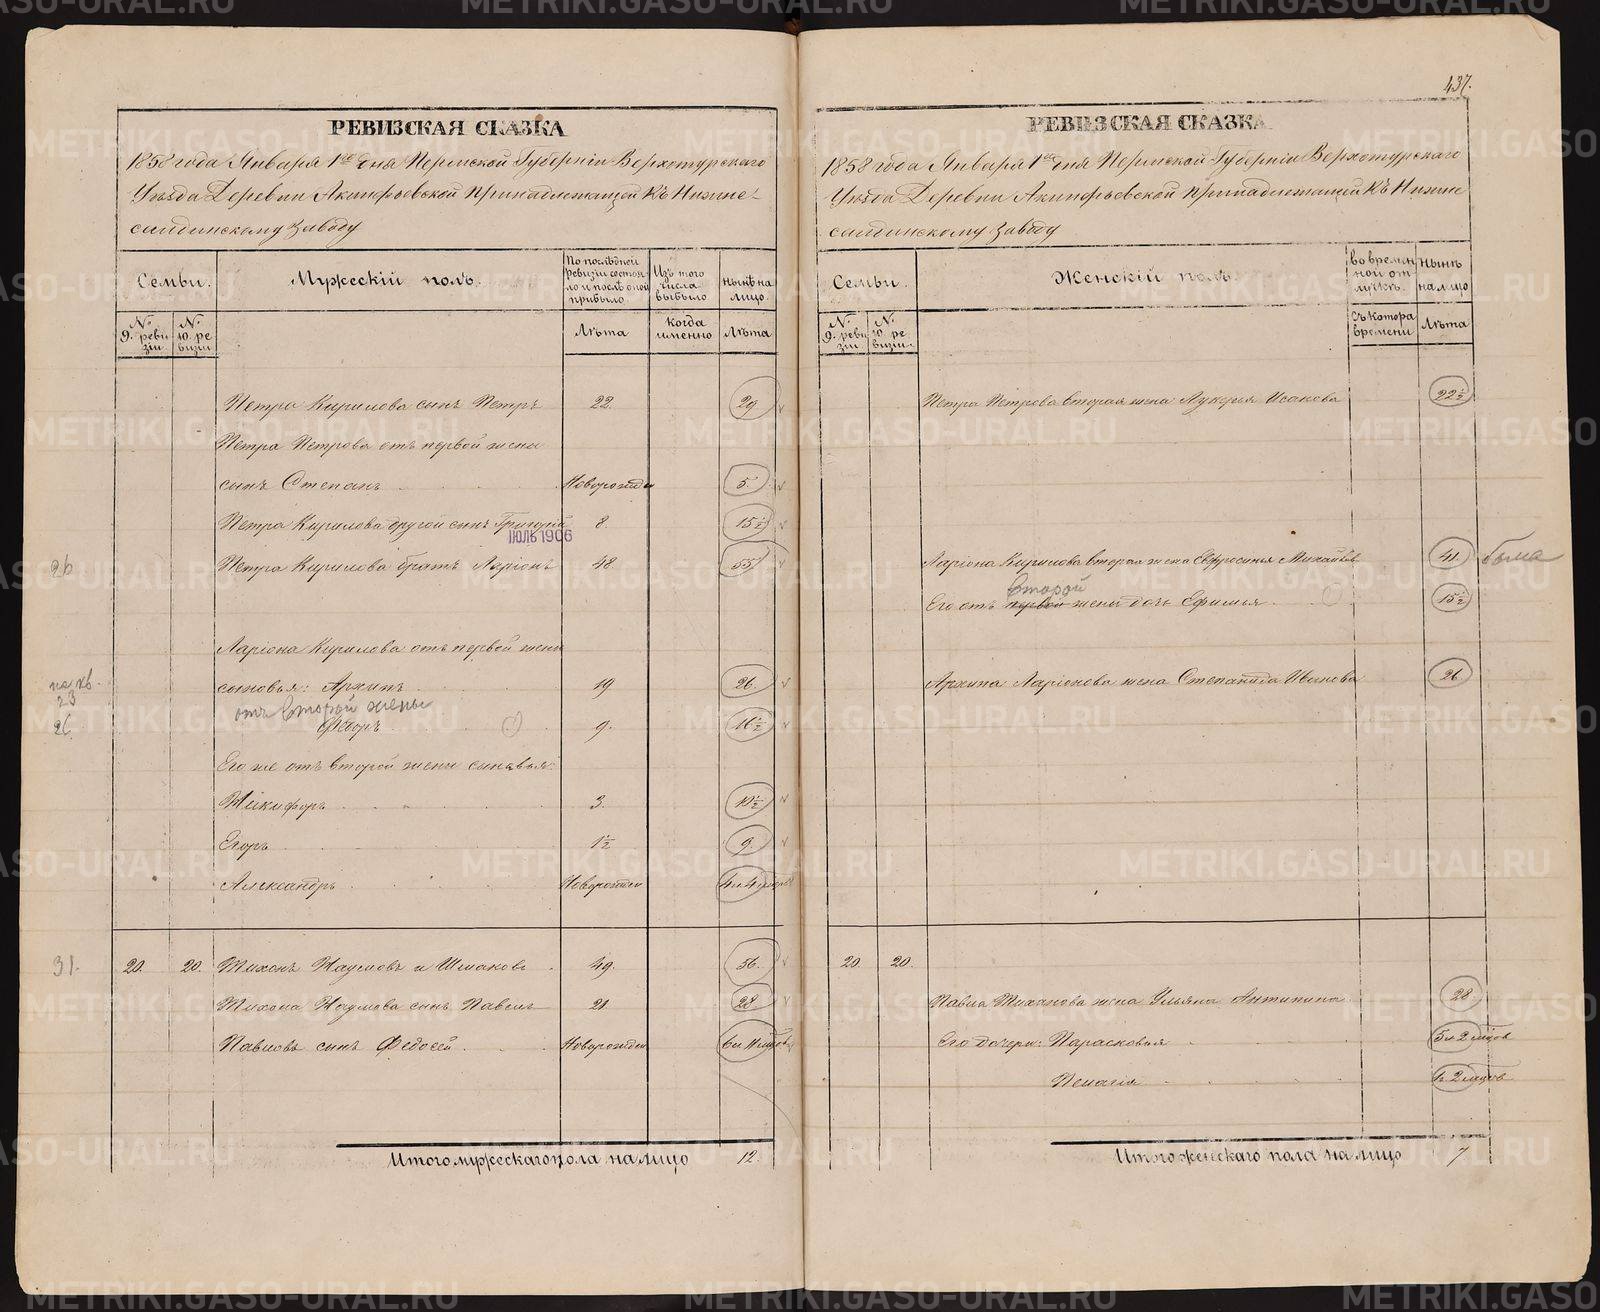 437.
РЕВИЗСКАЯ СКАЗКА
1858 года Января 1го дня Пермской Губерніи Верхотурскаго
Уѣзда Деревни Акинфьевской принадлежащей къ Нижне-
салдинскому заводу
Семьи.
Мужескій полъ.
По послѣдней ревизіи состояло и послѣ оной прибыло
Изъ того числа выбыло
Нынѣ на лицо.
№ 9. ревизіи
№ 10. ревизіи
Лѣта
Когда именно
Лѣта
Петра Кирилова сынъ Петръ 22. 29
Петра Петрова отъ первой жены
сынъ Степанъ Новорожден 5.
Петра Кирилова другой сынъ Григорій 8. 15½
ІЮЛЬ 1906
26 Петра Кирилова братъ Ларіонъ 48. 55
Ларіона Кирилова отъ первой жены
23
сыновья: Архипъ 19 26.
отъ второй жены
26 Федоръ 9. 16½
Его же отъ второй жены сыновья:
Никифоръ 3. 10½
Егоръ 1½ 9.
Александръ Новорожден
31. 20. 20. Тихонъ Наумовъ Шмаковъ 49. 56.
Тихона Наумова сынъ Павелъ 21 28
Павловъ сынъ Федосей Новорожден
Итого мужескаго пола на лицо 12.
РЕВИЗСКАЯ СКАЗКА
1858 года Января 1го дня Пермской Губерніи Верхотурскаго
Уѣзда Деревни Акинфьевской принадлежащей къ Нижне
салдинскому заводу
Семьи.
Женскій полъ.
во временной отлучкѣ.
Нынѣ на лицо
№ 9. ревизіи
№ 10. ревизіи
Съ котора времени
Лѣта
Петра Петрова вторая жена Лукерья Исакова 22½
Ларіона Кирилова вторая жена Евфросинья Михайлова 41.
второй
Его отъ первой жены дочь Ефимья 15½
Архипа Ларіонова жена Степанида Иванова 26
20 20.
Павла Тихонова жена Ульяна Антипина 28
Его дочери: Парасковья 5 и 2 мѣсяцов
Пелагія
Итого женскаго пола на лицо 7
METRIKI.GASO-URAL.RU